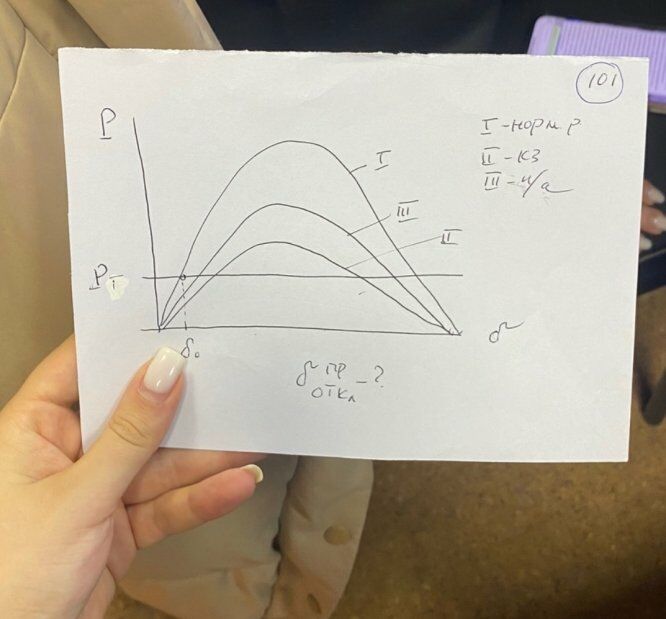 101
P
I - норм.р.
II - КЗ
III - п/а
I
III
II
PT
δ₀
δ
δ пр
откл - ?